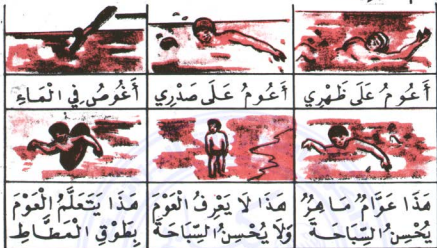 أَعُومُ عَلَى ظَهْرِي
أَعُومُ عَلَى صَدْرِي
أَغُوصُ فِي الْمَاءِ
هَذَا عَوَّامٌ مَاهِرٌ
يُحْسِنُ السِّبَاحَةَ
هَذَا لَا يَعْرِفُ الْعَوْمَ
وَلَا يُحْسِنُ السِّبَاحَةَ
هَذَا يَتَعَلَّمُ الْعَوْمَ
بِطَوْقِ الْمَطَّاطِ